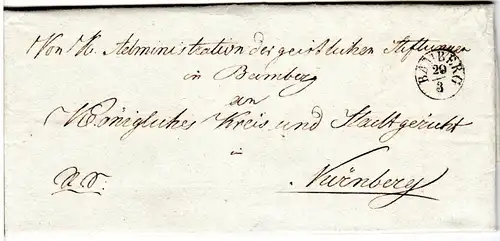 Von K. Administration der geistlichen Stiftungen
in Bamberg
BAMBERG
20
3
an
Königliches Kreis und Stadtgericht
in
Nürnberg